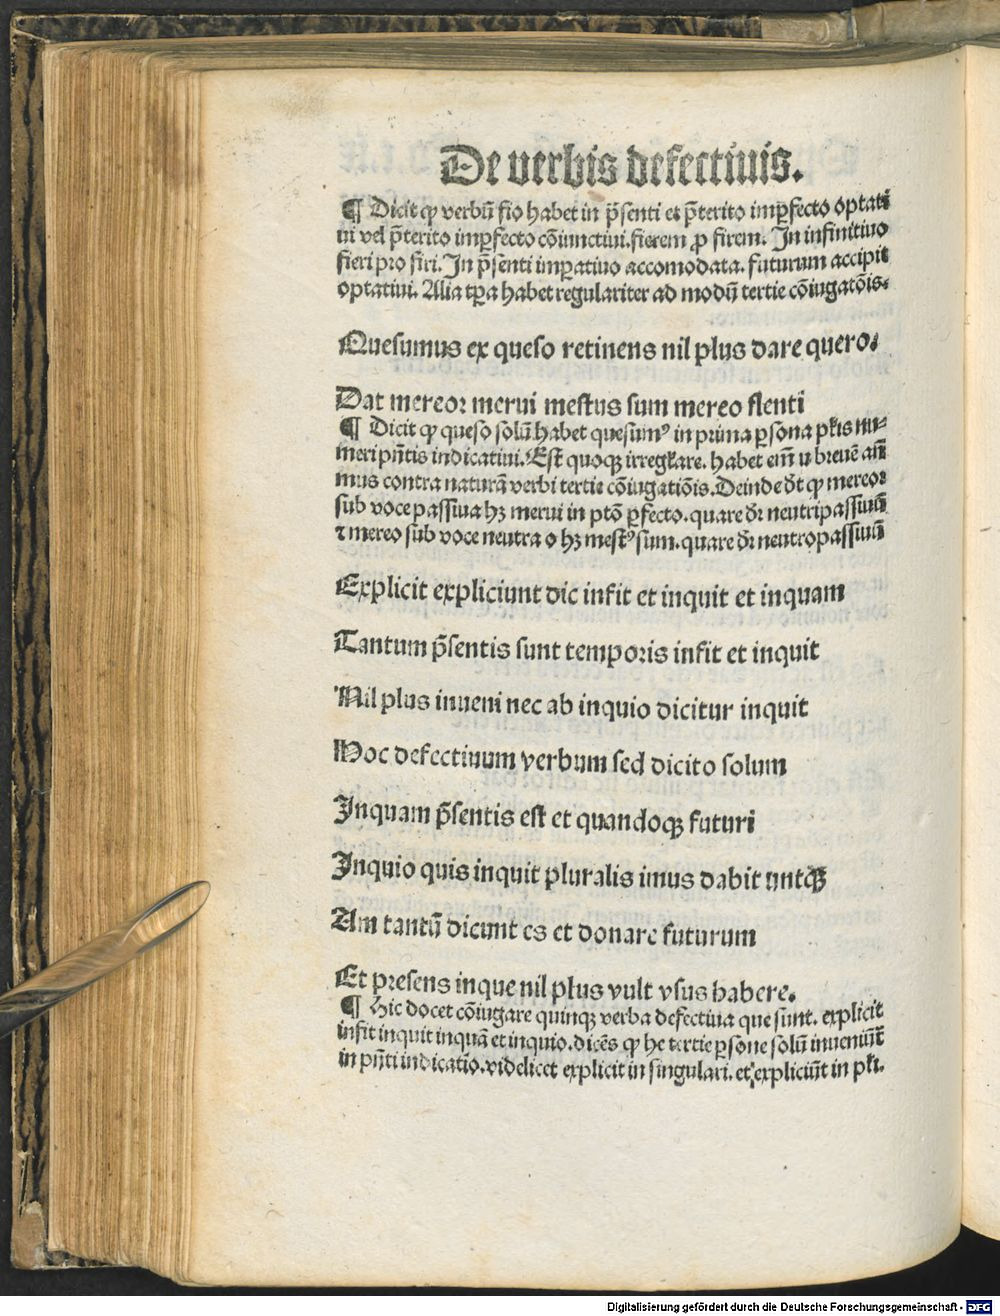 De verbis defectiuis.
¶ Dicit ꝙ verbū fio habet in p̄senti et p̄terito imꝑfecto optati
ui vel p̄terito imꝑfecto cōiunctiui. fierem ꝓ firem. In infinitiuo
fieri pro firi. In p̄senti imꝑatiuo accomodata. futurum accipit
optatiui. Alia tꝑa habet regulariter ad modū tertie cōiugatōis.
Quesumus ex queso retinens nil plus dare quero.
Dat mereor merui mestus sum mereo flenti
¶ Dicit ꝙ queso solū habet quesumꝰ in prima ꝑsona pl̄is nu-
meri pn̄tis indicatiui. Est quoqꝫ irregl̄are. habet em̄ u breuē an̄
mus contra naturā verbi tertie cōiugatiōis. Deinde dt̄ ꝙ mereor
sub voce passiua hꝫ merui in ptō ꝑfecto. quare dr̄ neutripassiuū
⁊ mereo sub voce neutra o hꝫ mestꝰ sum. quare dr̄ neutropassiuū
Explicit expliciunt dic infit et inquit et inquam
Tantum p̄sentis sunt temporis infit et inquit
Nil plus inueni nec ab inquio dicitur inquit
Hoc defectiuum verbum sed dicito solum
Inquam p̄sentis est et quandoqꝫ futuri
Inquio quis inquit pluralis imus dabit untqꝫ
Am tantū dicunt es et donare futurum
Et presens inque nil plus vult vsus habere.
¶ Hic docet cōiugare quinqꝫ verba defectiua que sunt. explicit
infit inquit inquā et inquio. dicēs ꝙ he tertie ꝑsone solū inueniūt̄
in pn̄ti indicatio. videlicet explicit in singulari. et expliciūt in pl̄i.
Digitalisierung gefördert durch die Deutsche Forschungsgemeinschaft - DFG